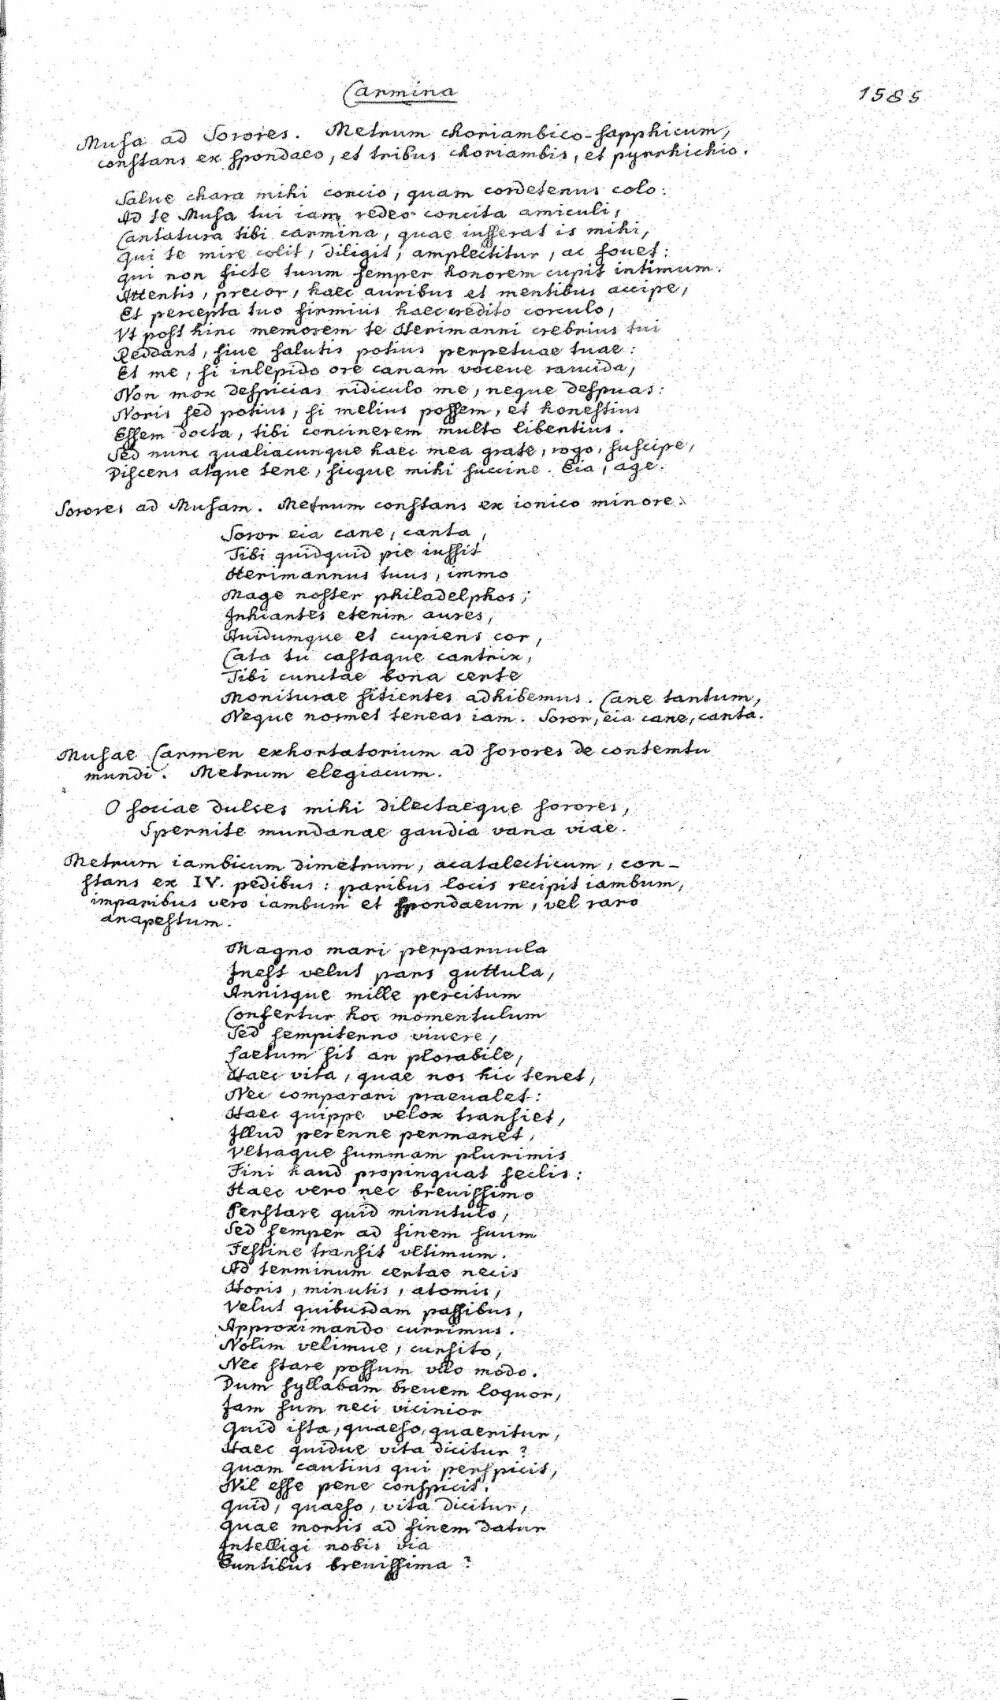 Carmina
1585
Musa ad Sorores. Metrum choriambico-sapphicum,
constans ex spondaeo, et tribus choriambis, et pyrrhichio.
Salue chara mihi concio, quam cordetenus colo:
Ad te Musa tui iam redeo concita amiculi,
Cantatura tibi carmina, quae iusserat is mihi,
Qui te mire colit, diligit, amplectitur, ac fouet:
Qui non ficte tuum semper honorem cupit intimum.
Attentis, precor, haec auribus et mentibus accipe,
Et percepta tuo firmius haec credito corculo,
Vt post hinc memorem te Herimanni crebrius tui
Reddant, siue salutis potius perpetuae tuae:
Et me, si inlepido ore canam voceue raucida,
Non mox despicias ridiculo me, neque despuas:
Noris sed potius, si melius possem, et honestius
Essem docta, tibi concinerem multo libentius.
Sed nunc qualiacunque haec mea grate, rogo, suscipe,
Discens atque tene, sicque mihi succine. Eia, age.
Sorores ad Musam. Metrum constans ex ionico minore.
Soror eia cane, canta,
Tibi quidquid pie iussit
Herimannus tuus, immo
Mage noster philadelphos;
Inhiantes etenim aures,
Auidumque et cupiens cor,
Cata tu castaque cantrix,
Tibi cunctae bona certe
Moniturae sitientes adhibemus. Cane tantum,
Neque nosmet teneas iam. Soror, eia cane, canta.
Musae Carmen exhortatorium ad sorores de contemtu
mundi. Metrum elegiacum.
O sociae dulces mihi dilectaeque sorores,
Spernite mundanae gaudia vana viae.
Metrum iambicum dimetrum, acatalecticum, con-
stans ex IV. pedibus: paribus locis recipit iambum,
imparibus vero iambum et spondaeum, vel raro
anapestum.
Magno mari perparuula
Inest velut pars guttula,
Annisque mille percitum
Confertur hoc momentulum
Sed sempiterno viuere,
Faetum sit an plorabile,
Haec vita, quae nos hic tenet,
Nec comparari praeualet:
Haec quippe velox transiet,
Illud perenne permanet,
Vltraque summam plurimis
Fini haud propinquat seclis:
Haec vero nec breuissimo
Perstare quid minutulo,
Sed semper ad finem suum
Festine transit vltimum.
Ad terminum certae necis
Horis, minutis, atomis,
Velut quibusdam passibus,
Approximando currimus.
Nolim velimue, cursito,
Nec stare possum vllo modo.
Dum syllabam breuem loquor,
Iam sum neci vicinior
Quid ista, quaeso, quaeritur,
Haec quidue vita dicitur?
Quam cautius qui perspicit,
Nil esse pene conspicit.
Quid, quaeso, vita dicitur,
Quae mortis ad finem datur
Intelligi nobis via
Euntibus breuissima?